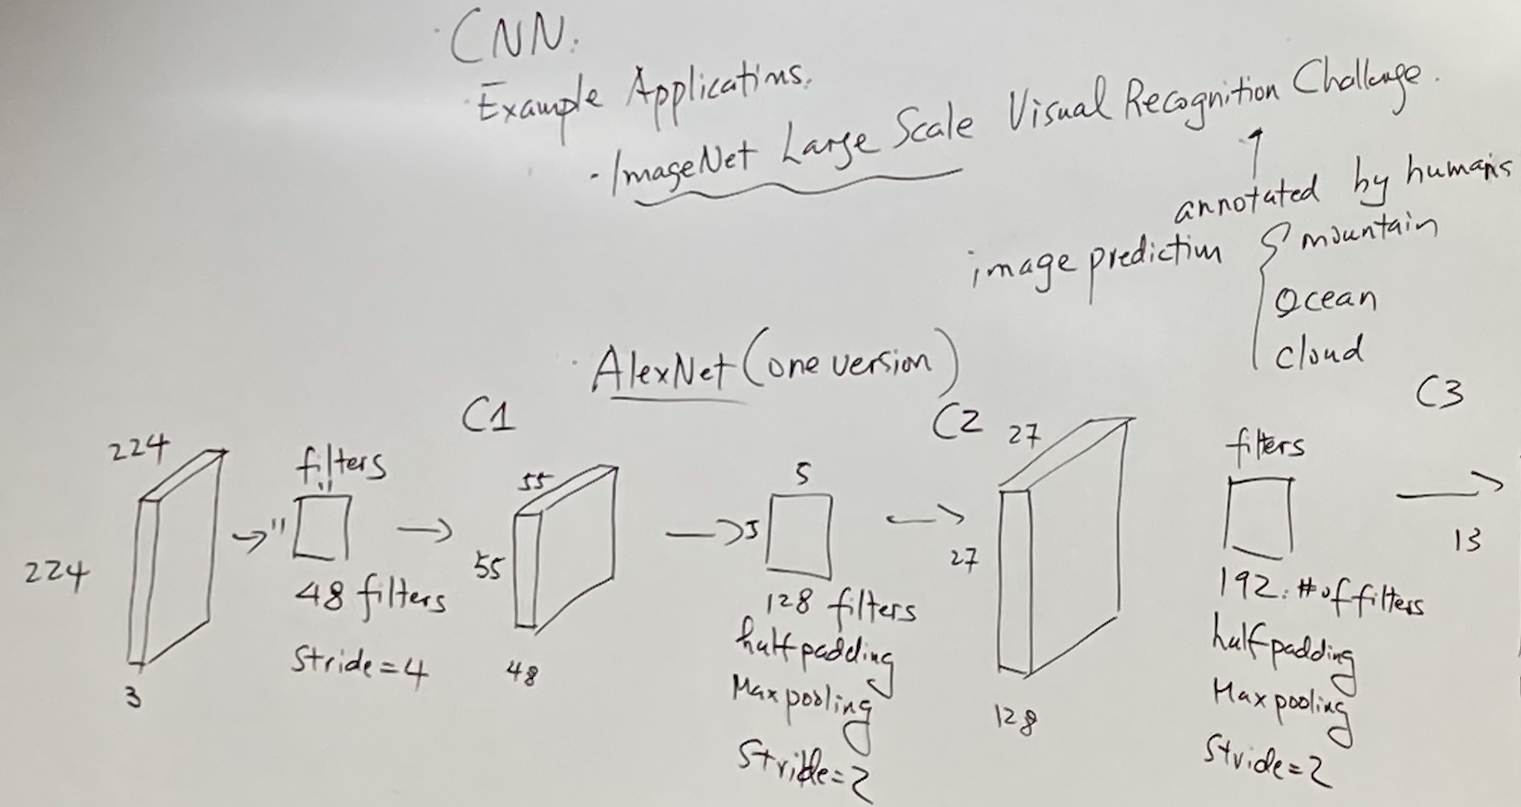 CNN.
Example Applications.
- ImageNet Large Scale Visual Recognition Challenge.
annotated by humans
image prediction { mountain
Ocean
cloud
AlexNet (one version)
C1
C2
C3
224
224
3
filters
11
11
48 filters
Stride=4
55
55
48
5
5
128 filters
half padding
Max pooling
Stride=2
27
27
128
filters
192: # of filters
half padding
Max pooling
Stride=2
13